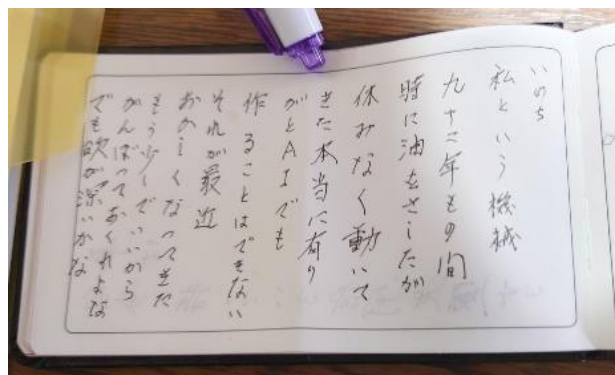 いのち
私という機械
九十二年もの間
時に油をさしたが
休みなく動いて
きた本当に有り
がとAIでも
作ることはできない
それが最近
おかしくなってきた
もう少しでいいから
がんばっておくれよな
でも欲が深いかな